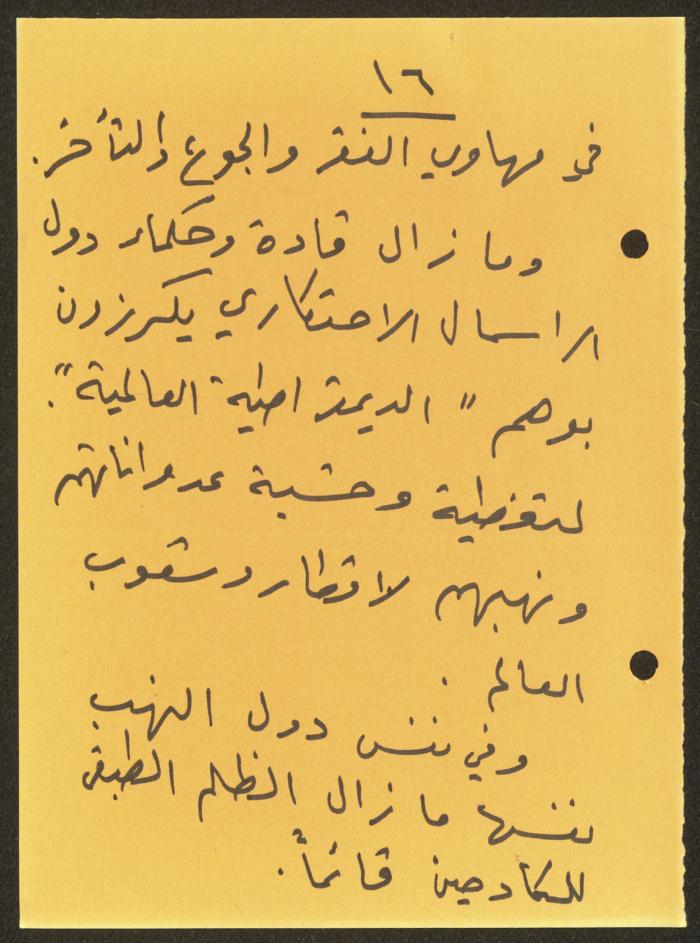 ١٦
في مهاوي الفقر والجوع والتأخر.
وما زال قادة وحكماء دول
الراسمال الاحتكاري يكرزون
بوهم "الديمقراطية العالمية".
لتغطية وحشية عدواناتهم
ونهبهم لاقطار وشعوب
العالم.
وفي نفس دول النهب
نفسها ما زال الظلم الطبقي
للكادحين قائماً.